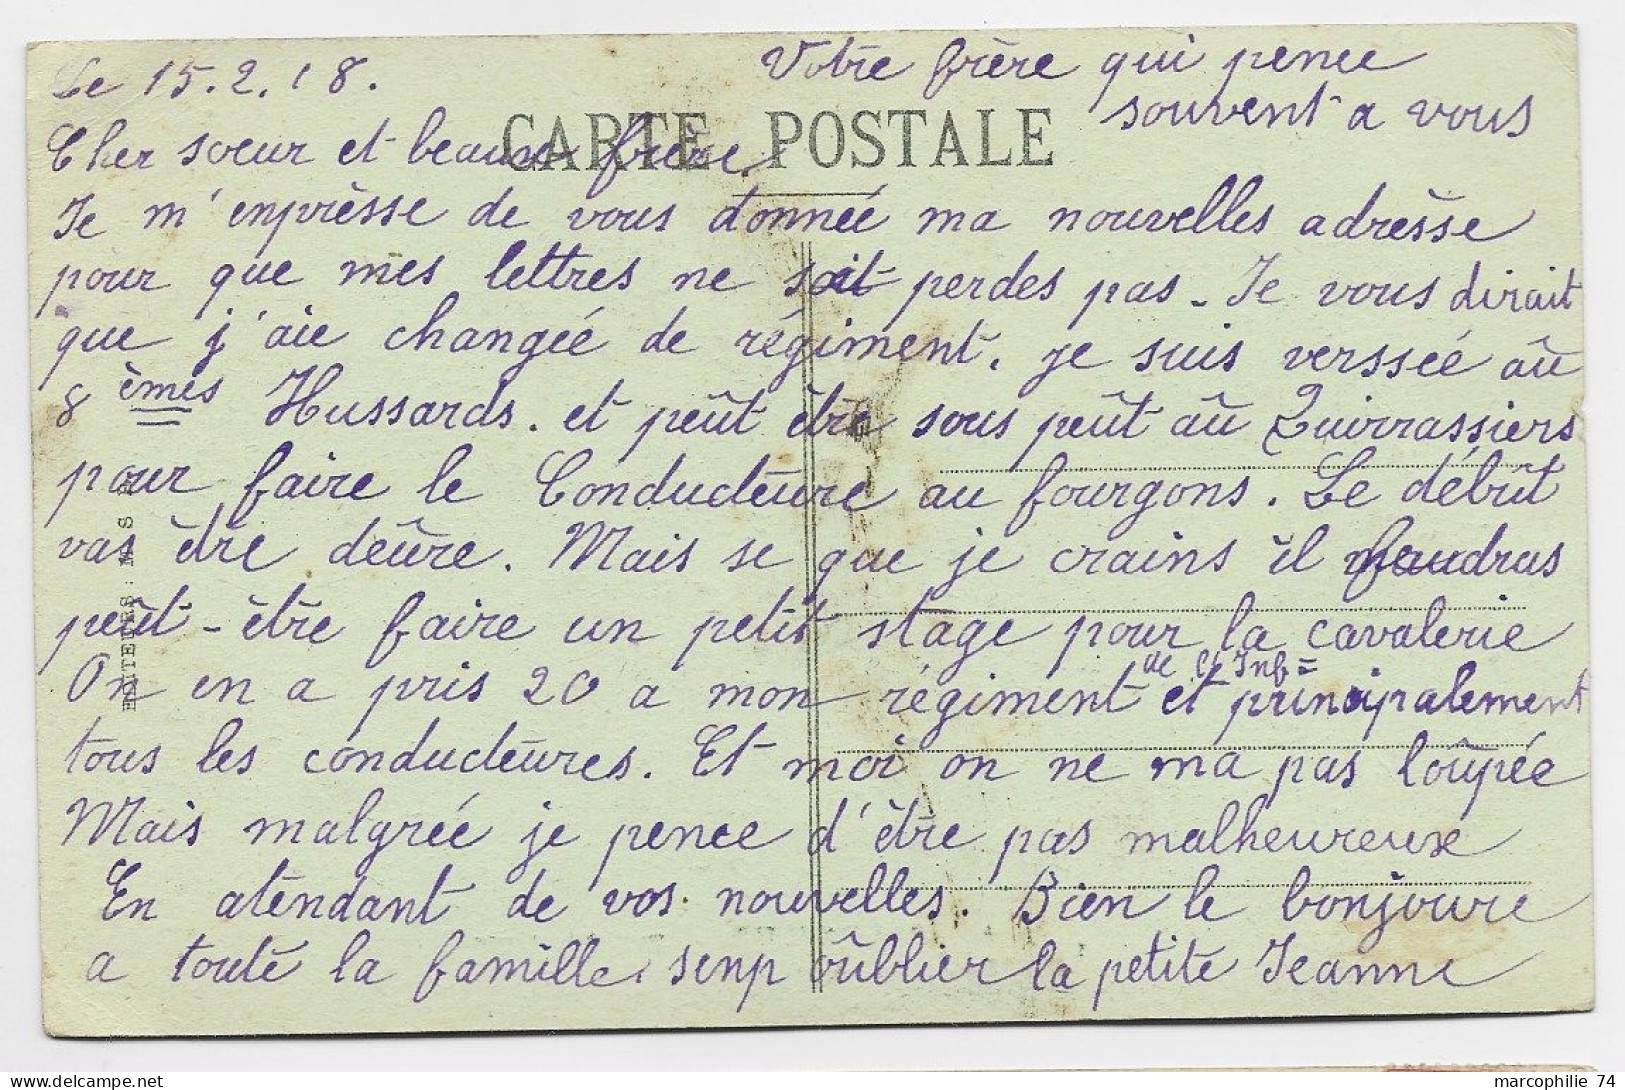 Le 15.2.18.
Votre frère qui pence
souvent a vous
CARTE POSTALE
Cher sœur et beaux frère,
Je m'enprèsse de vous donnée ma nouvelles adrèsse
pour que mes lettres ne soit perdes pas - Je vous dirait
que j'aie changée de régiment. je suis verssée aû
8 èmes Hussards. et peût être sous peût aû Quirrassiers
pour faire le Conducteure au fourgons. Le débût
vas être deûre. Mais se que je crains il faudras
peût-être faire un petit stage pour la cavalerie
On en a pris 20 a mon régiment de l'Inf= et principalement
tous les conducteures. Et moi on ne ma pas loûpée
Mais malgrée je pence d'être pas malheureux
En atendant de vos nouvelles. Bien le bonjoure
a toute la famille, senp oûblier la petite Jeanne
marcophilie 74